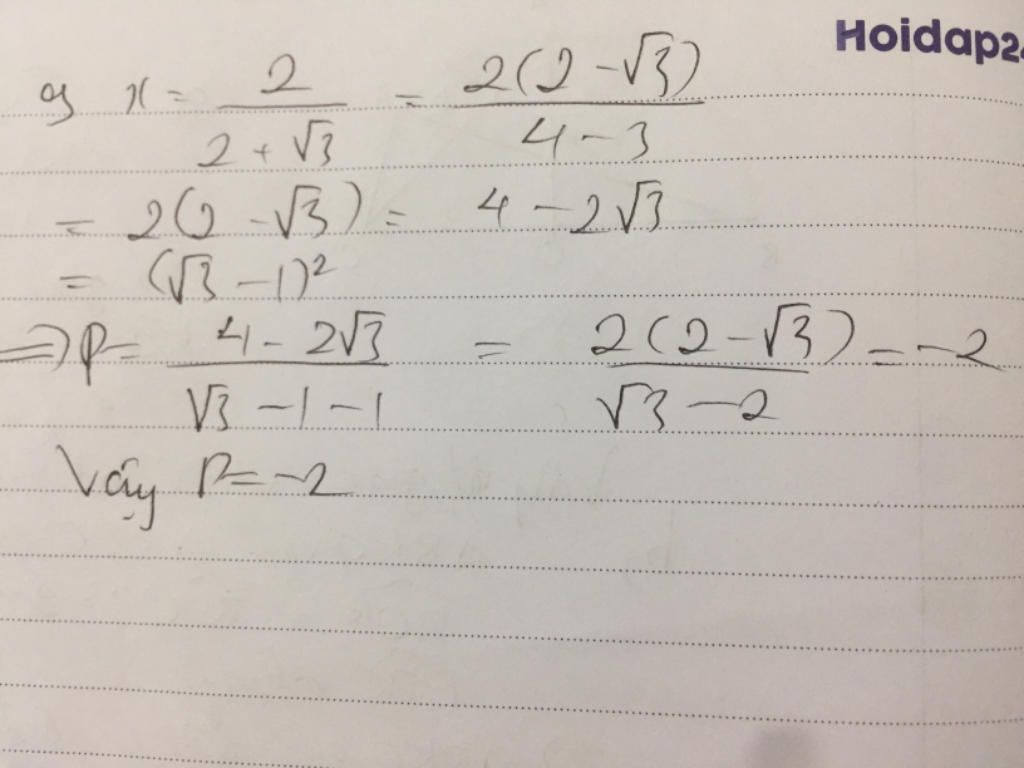 Hoidap24
x = \frac{2}{2+\sqrt{3}} = \frac{2(2-\sqrt{3})}{4-3}
= 2(2-\sqrt{3}) = 4-2\sqrt{3}
= (\sqrt{3}-1)^2
=> P = \frac{4-2\sqrt{3}}{\sqrt{3}-1-1} = \frac{2(2-\sqrt{3})}{\sqrt{3}-2} = -2
Vậy P = -2